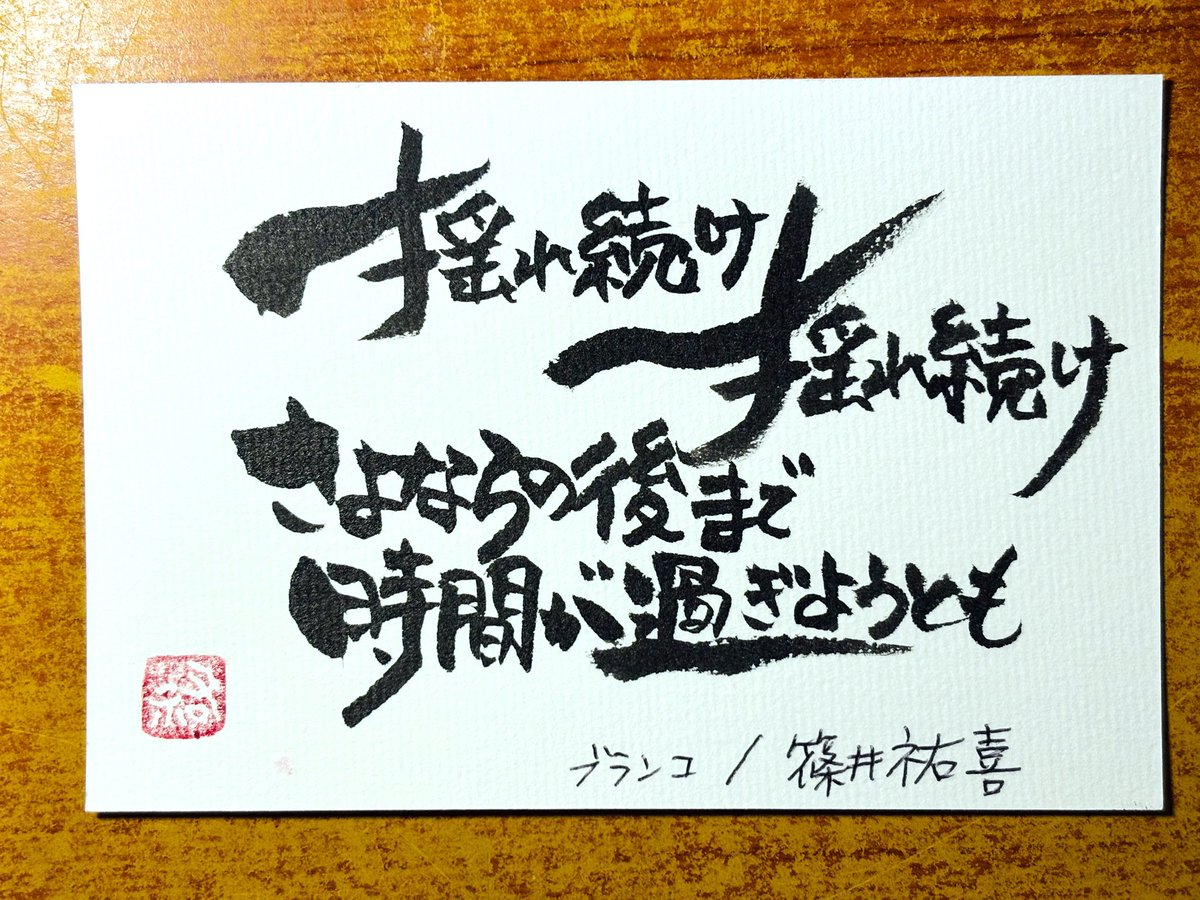 揺れ続け
揺れ続け
さよならの後まで
時間が過ぎようとも
ブランコ / 篠井祐喜